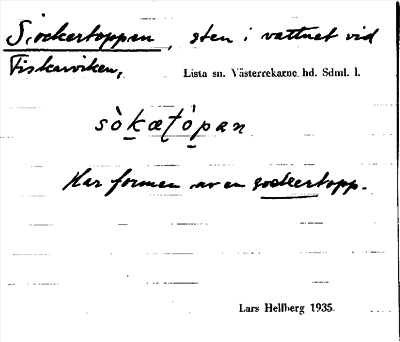 Sockertoppen, sten i vattnet vid
Fiskarviken,
Lista sn. Västerrekarne hd. Sdml. l.
sòkætòpan
Har formen av en sockertopp.
Lars Hellberg 1935.